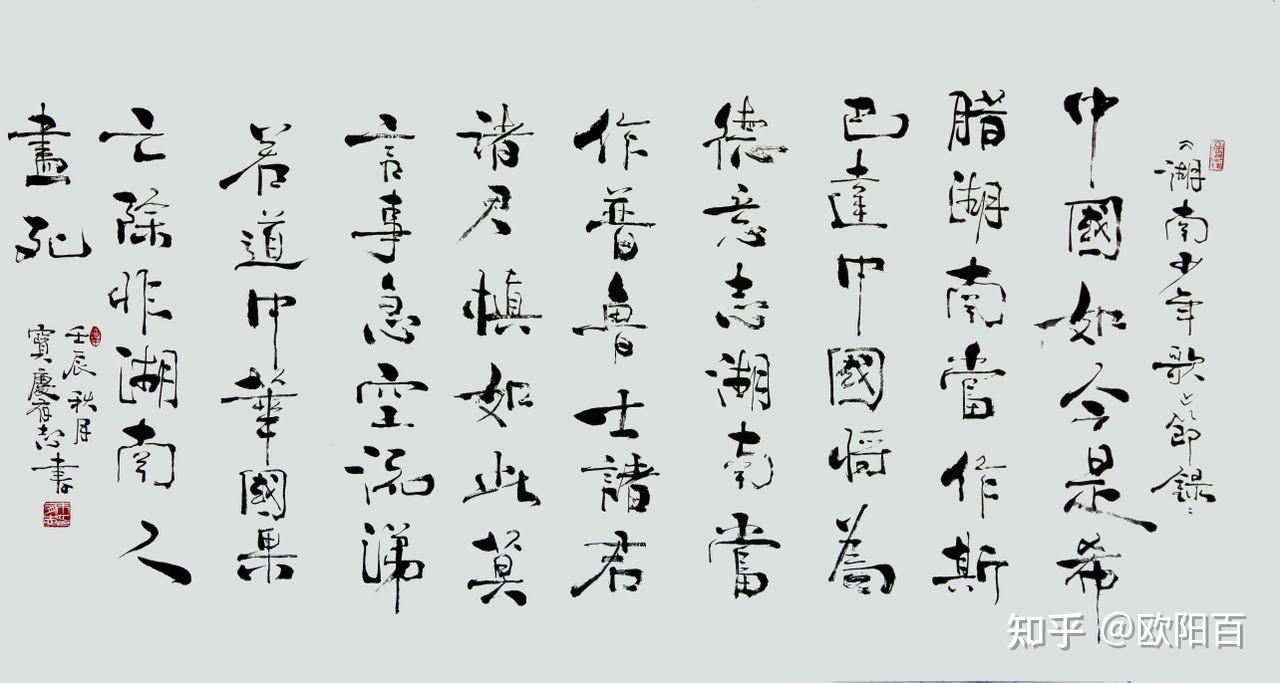 《湖南少年歌》節録
中國如今是希
腊湖南當作斯
巴達中國将為
德意志湖南當
作普魯士諸君
諸君慎如此莫
言事急空流涕
若道中華國果
亡除非湖南人
盡死
壬辰秋月
寶慶有志書
知乎 @欧阳百